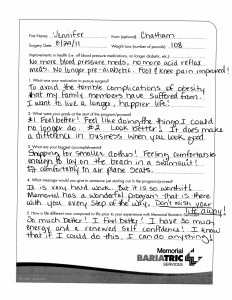 First Name: Jennifer From (optional): Chatham
Surgery Date: 8/29/11 Weight Loss (number of pounds): 108
Improvements in health (i.e. off blood pressure medications, no longer diabetic, etc.):
No more blood pressure meds, no more acid reflux
meds. No longer pre-diabetic. Foot & knee pain improved!
1. What was your motivation to pursue surgery?
To avoid the terrible complications of obesity
that my family members have suffered from.
I want to live a longer, happier life!
2. What were your goals at the start of the program/process?
#1 Feel better! Feel like doing the things I could
no longer do. #2 Look better! It does make
a difference in business when you look good.
3. What is your biggest accomplishment?
Shopping for smaller clothes! Feeling comfortable
enough to lay on the beach in a swimsuit!
Fit comfortably in air plane seats.
4. What message would you give to someone just starting out in the program/process?
It is very hard work. But it is so worth it!
Memorial has a wonderful program that is there
with you every step of the way. Don't wish your
life away!
5. How is life different now compared to life prior to your experience with Memorial Bariatric Services?
So much better! I feel better! I have so much
energy and a renewed self confidence! I know
that if I could do this, I can do anything!
Memorial
BARIATRIC
SERVICES